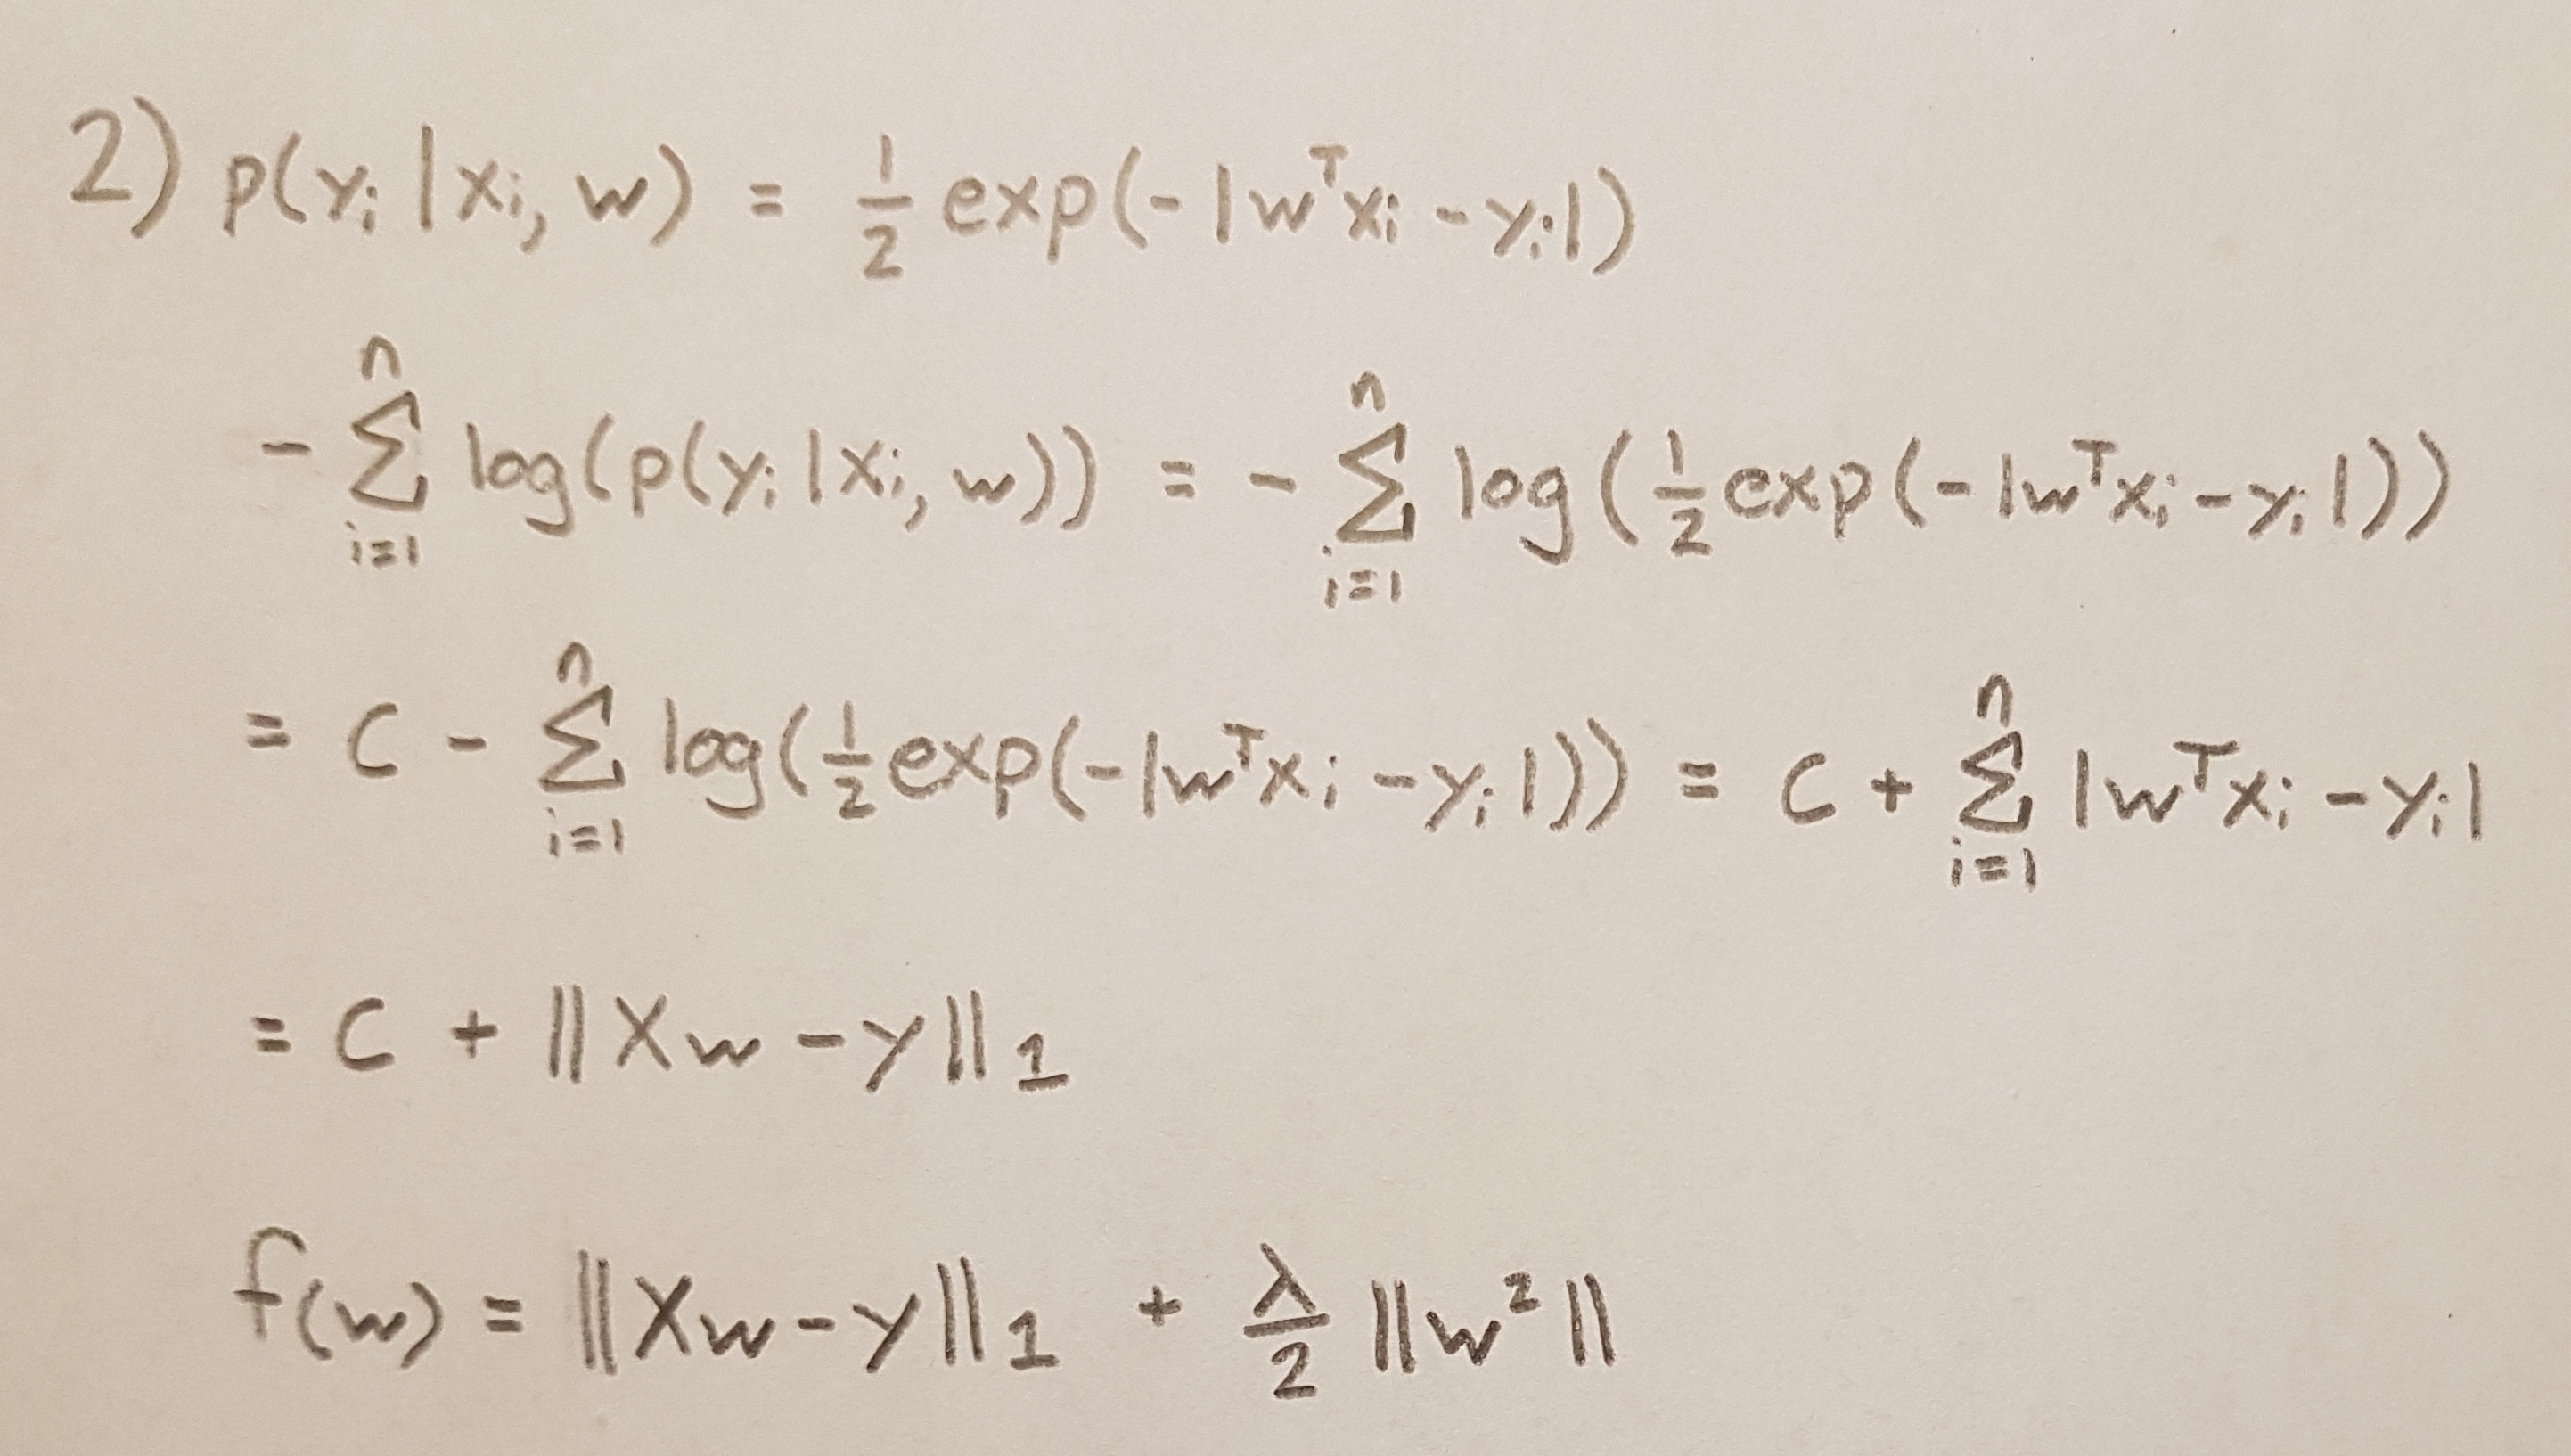 2) p(yᵢ | xᵢ, w) = ½ exp(-|wᵀxᵢ - yᵢ|)
-∑ᵢ₌₁ⁿ log(p(yᵢ | xᵢ, w)) = -∑ᵢ₌₁ⁿ log(½ exp(-|wᵀxᵢ - yᵢ|))
= C - ∑ᵢ₌₁ⁿ log(½ exp(-|wᵀxᵢ - yᵢ|)) = C + ∑ᵢ₌₁ⁿ |wᵀxᵢ - yᵢ|
= C + ||Xw - y||₁
f(w) = ||Xw - y||₁ + λ/2 ||w²||